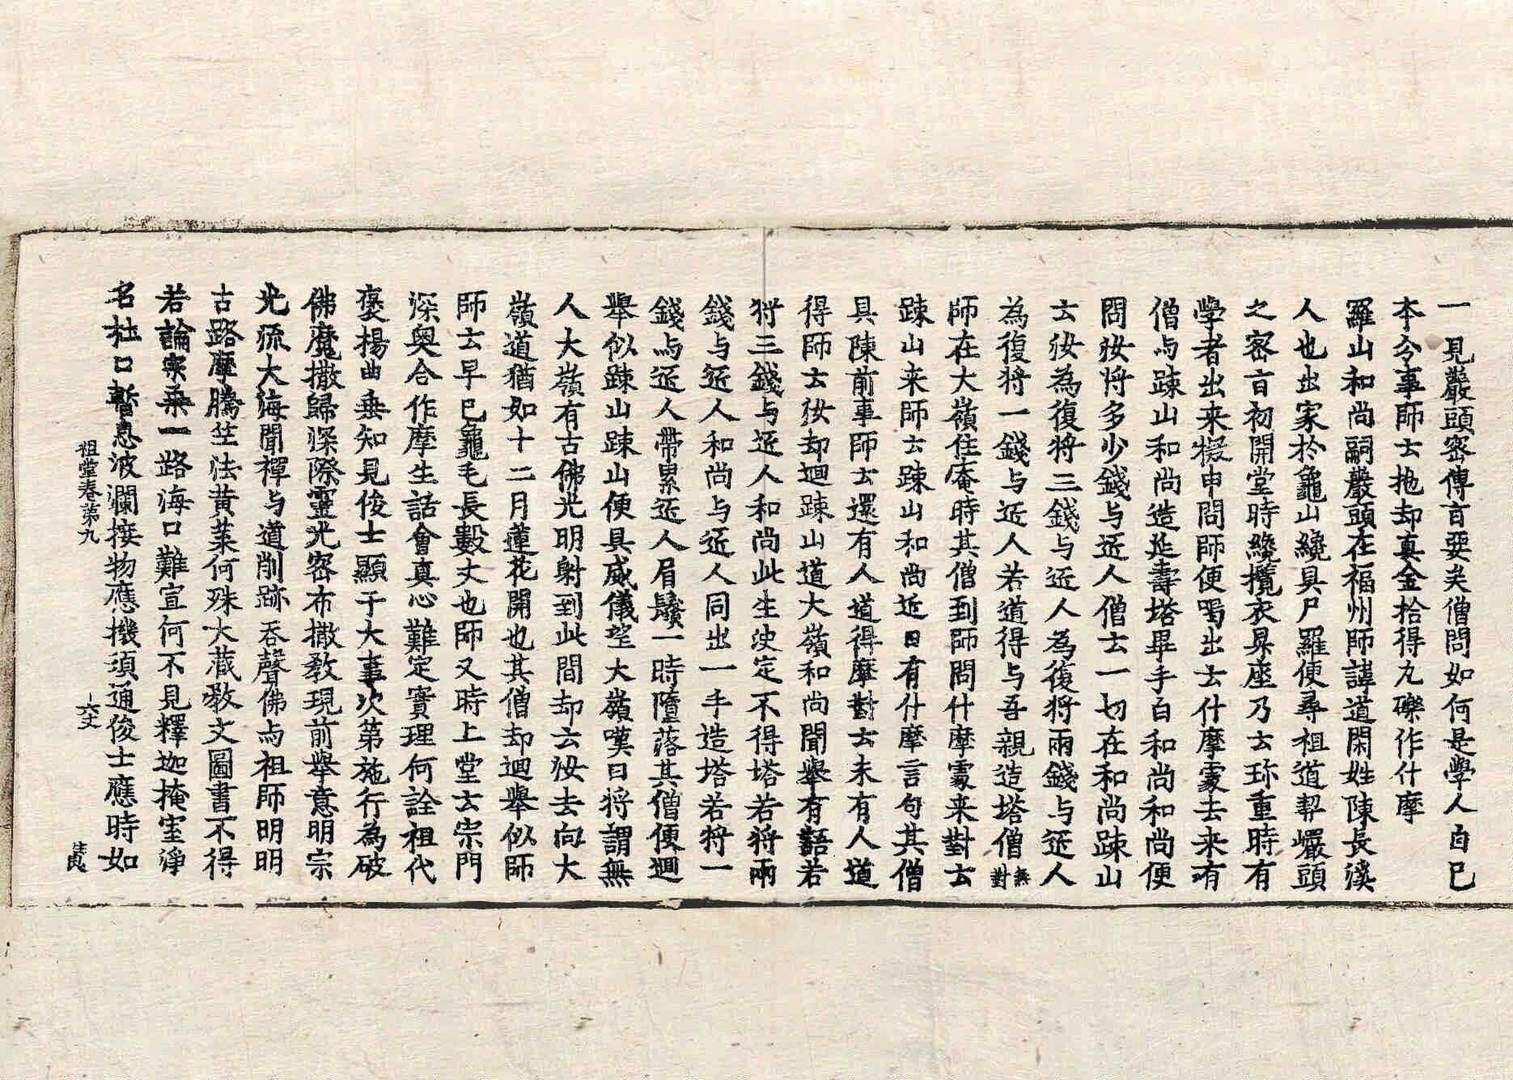 一見巖頭密傳旨要矣僧問如何是學人自己
本分事師士拋却真金拾得九礫作什摩
羅山和尚嗣巖頭在福州師諱道閑姓陳長溪
人也出家於龜山纔具尸羅便尋祖道契巖頭
之密旨初開堂時纔攬衣昇座乃云珎重時有
學者出来擬申問師便喝出云什摩處去来有
僧与踈山和尚造延壽塔畢手白和尚和尚便
問汝将多少錢与近人僧云一切在和尚踈山
云汝為復将三錢与近人為復将兩錢与近人
為復将一錢与近人若道得与吾親造塔僧無對
師在大嶺住庵時其僧到師問什摩處来對云
踈山来師云踈山和尚近日有什摩言句其僧
具陳前事師云還有人道得摩對云未有人道
得師云汝却迴踈山道大嶺和尚聞舉有語若
将三錢与近人和尚此生决定不得塔若将兩
錢与近人和尚与近人同出一手造塔若将一
錢与近人帶累近人眉鬚一時墮落其僧便迴
舉似踈山踈山便具威儀望大嶺嘆曰将謂無
人大嶺有古佛光明射到此間却云汝去向大
嶺道猶如十二月蓮花開也其僧却迴舉似師
師云早已龜毛長數丈也師又時上堂云宗門
深奥合作摩生話會真心難定實理何詮祖代
褒揚曲垂知見俊士顯于大事次第施行為破
佛魔撒歸深際靈光密布撒教現前舉意明宗
光流大海聞禪与道削跡吞聲佛与祖師明明
古路摩騰竺法黄葉何殊大藏教文圖書不得
若論宗乘一路海口難宣何不見釋迦掩室淨
名杜口暫息波瀾接物應機須通俊士應時如
祖堂卷第九 六丈